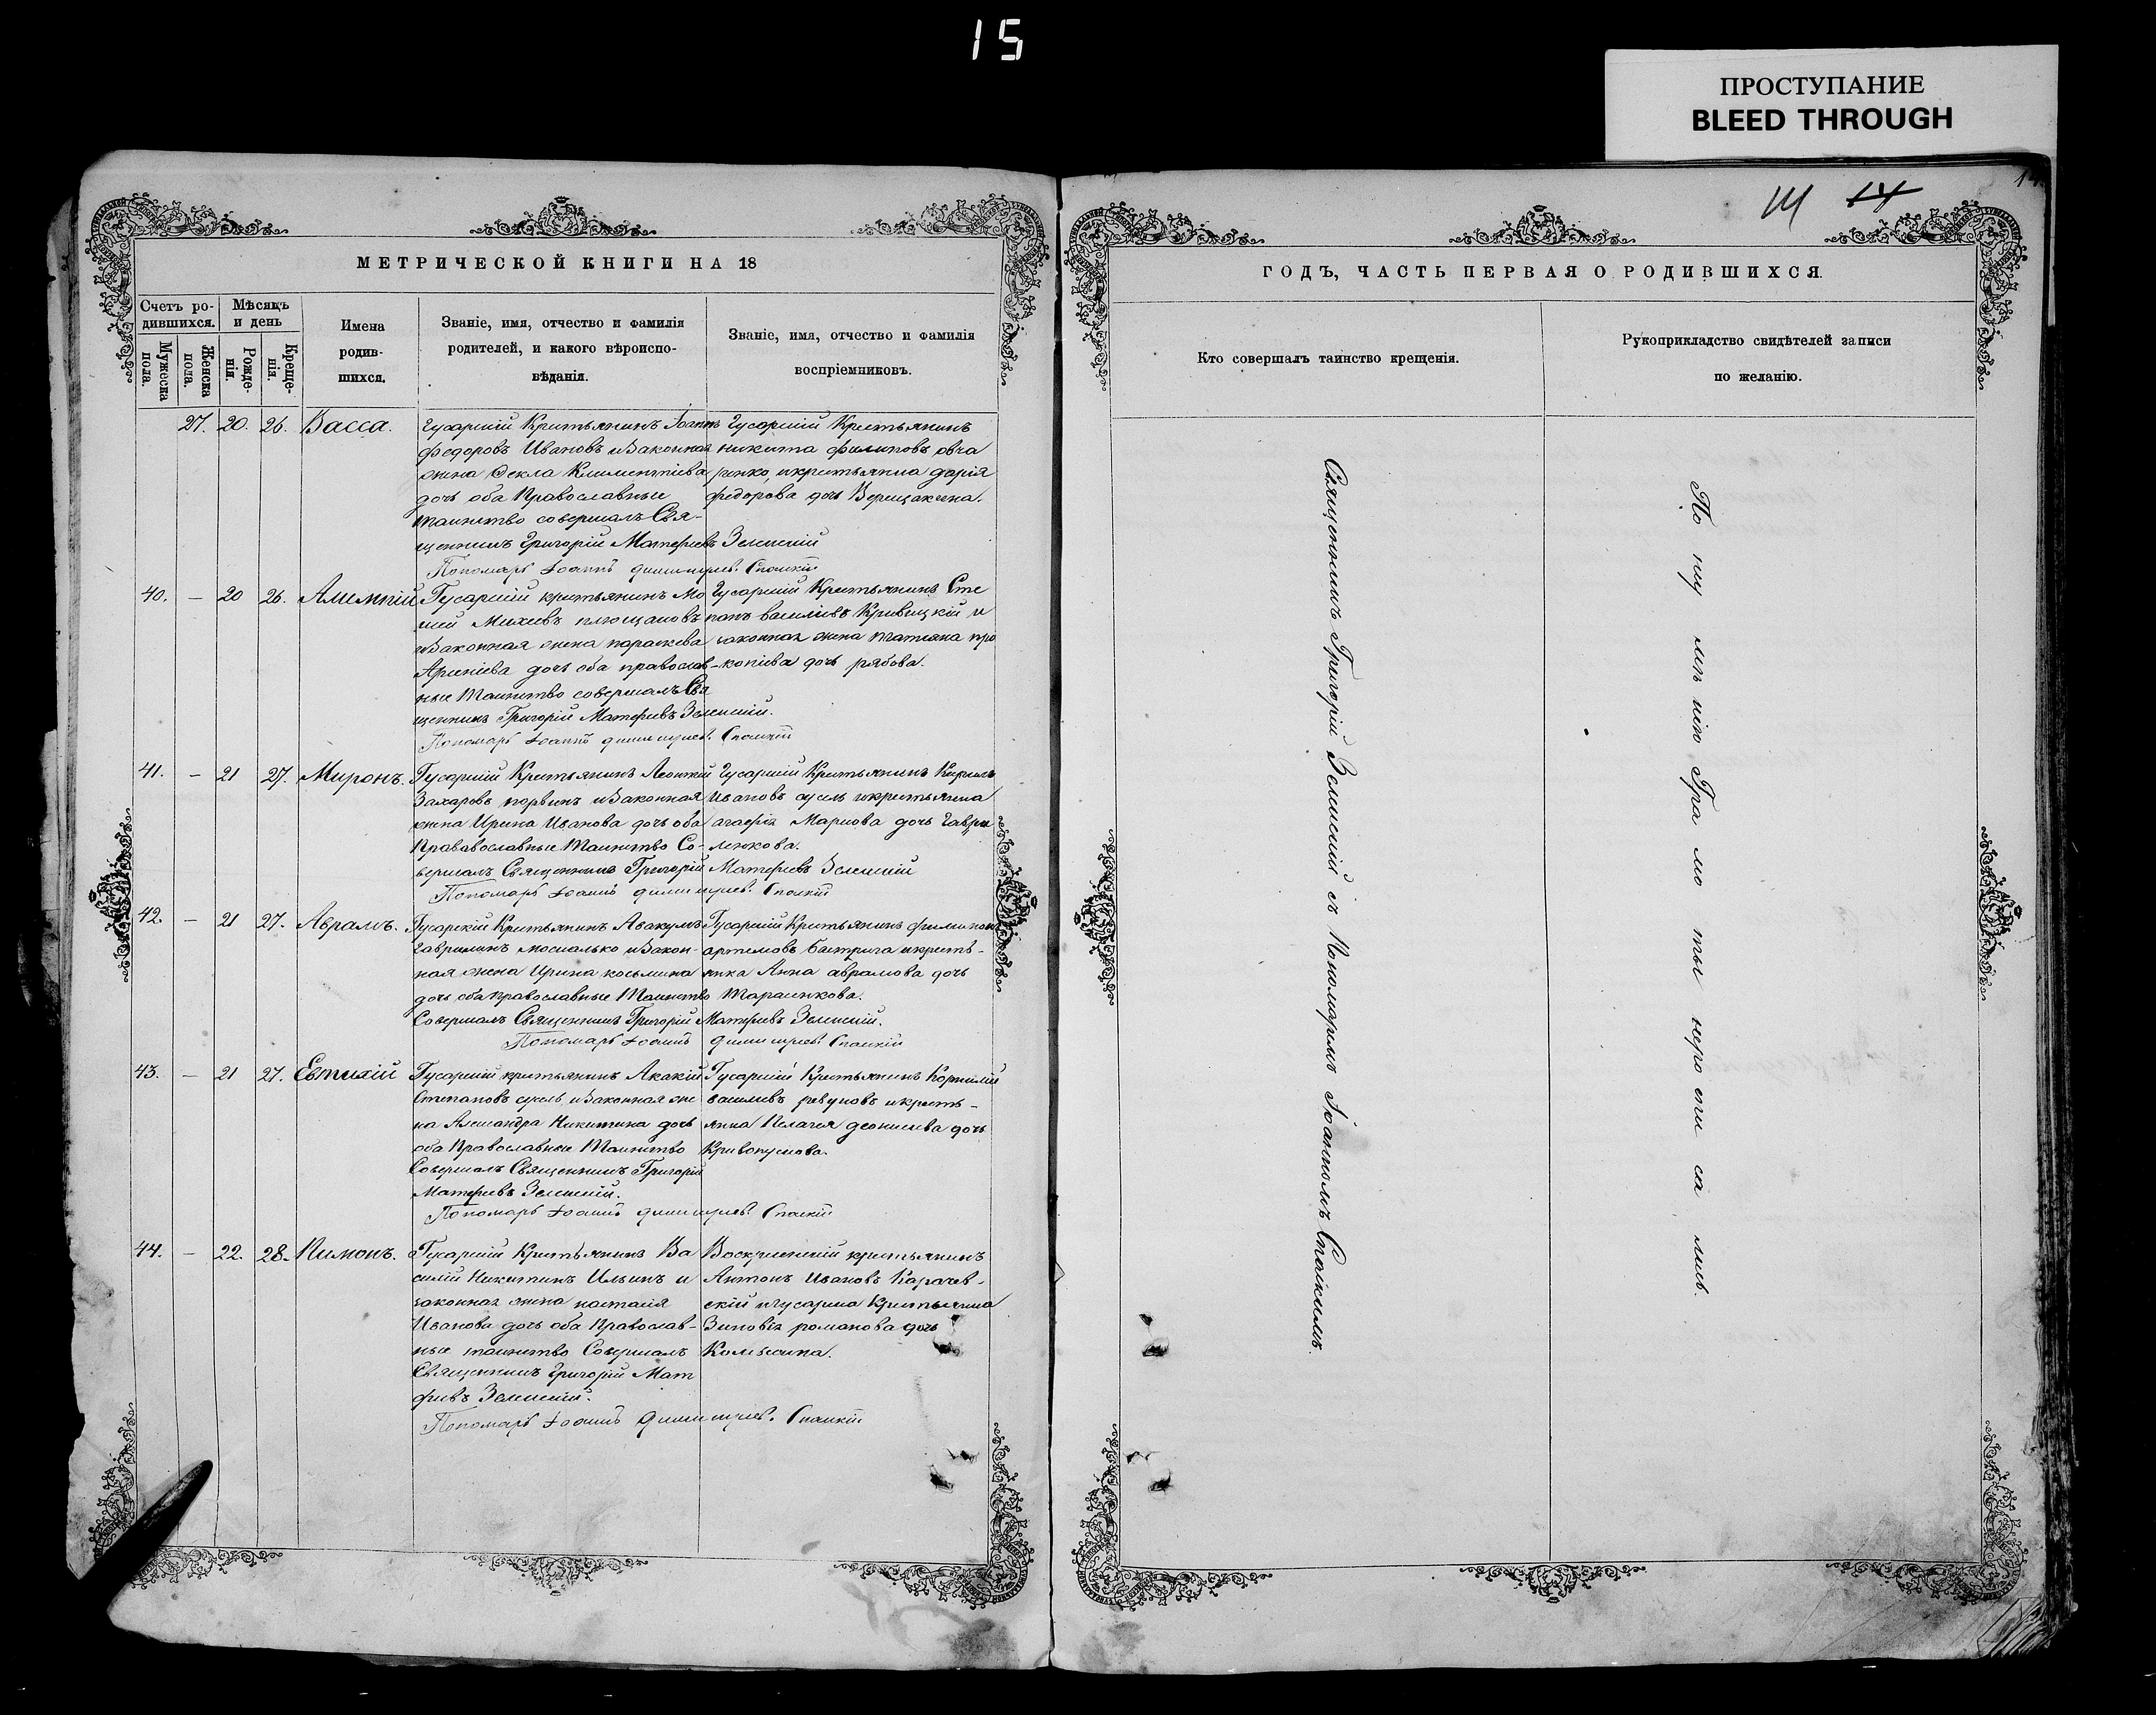 15
ПРОСТУПАНИЕ
BLEED THROUGH
14 14
МЕТРИЧЕСКОЙ КНИГИ НА 18
Счетъ ро-
дившихся.
Мужеска пола.
Женска пола.
Мѣсяцъ
и день
Рожде-
нія.
Креще-
нія.
Имена
родив-
шихся.
Званіе, имя, отчество и фамилія
родителей, и какого вѣроиспо-
вѣданія.
Званіе, имя, отчество и фамилія
воспріемниковъ.
27. 20. 26. Васса.
Гусарский Кретьянинъ Іоаннъ
федоровъ Ивановъ иЗаконная
жена Фекла Климентіева
дочь оба Православные
таинство совершалъ Свя-
щенникъ Григорій Матфеевъ Зеленский
Пономарь Іоаннъ димитриев. Спаский
Гусарский Кретьянинъ
никита филиповъ овча
ренко, икретьянка дарія
федорова дочь Верещакина.
40. — 20 26. Алемпій
Гусарский кретьянинъ Мо
сей Михеевъ плющановъ
иЗаконная жена параскева
Арсенієва дочь оба православ-
ные Таинство совершалъ Свя
щенникъ Григорій Матфеевъ Зеленский.
Пономарь Іоаннъ димитриев. Спаский
Гусарский Кретьянинъ Сте
панъ василиевъ Кривецкій и
законная жена татиана про
копієва дочь рябова.
41. — 21 27. Миронъ.
Гусарский Кретьянинъ Леонтий
Захаровъ порвинъ иЗаконная
жена Ирина Иванова дочь оба
Прававославные Таинство Со-
вершалъ Священникъ Григорій Матфеевъ Зеленский
Пономарь Іоаннъ димитриев. Спаский
Гусарский Кретьянинъ Кирилъ
Ивановъ сусль икретьянка
агафія Маркова дочь Гаври
ленкова.
42. — 21 27. Аврамъ.
Гусарский Кретьянинъ Авакумъ
Гаврилинъ москалько иЗакон-
ная жена Ирина козьмина
дочь оба православные Таинство
Совершалъ Священникъ Григорій Матфеевъ Зеленский.
Пономарь Іоаннъ димитриев. Спаский
Гусарский Кретьянинъ филимонъ
артемовъ бастрига икреть-
янка Анна аврамова дочь
Тарасенкова.
43. — 21 27. Евтихій
Гусарский кретьянинъ Акакій
Степановъ сусль иЗаконная же
на Александра Никитина дочь
оба Православные Таинство
Совершалъ Священникъ Григорій
Матфеевъ Зеленский.
Пономарь Іоаннъ димитриев. Спаский
Гусарский Кретьянинъ Корнилій
василиевъ ревуновъ икреть-
янка Пелагея деонисиева дочь
Кривопускова.
44. — 22. 28. Пимонъ.
Гусарский Кретьянинъ Ва
силій Никитинъ Ильинъ и
законная жена настасія
Иванова дочь оба Православ-
ные таинство Совершалъ
Священникъ Григорій Мат
феевъ Зеленский.
Пономарь Іоаннъ димитриев. Спаский
Воскресенский кретьянинъ
Антонъ Ивановъ Карачев-
скій иГусарска Кретьянка
Зиновія романова дочь
ГОДЪ, ЧАСТЬ ПЕРВАЯ О РОДИВШИХСЯ.
Кто совершалъ таинство крещенія.
Рукоприкладство свидѣтелей записи
по желанію.
Священникъ Григорій Зеленский съ Пономаремъ Іоанномъ Спаскимъ.